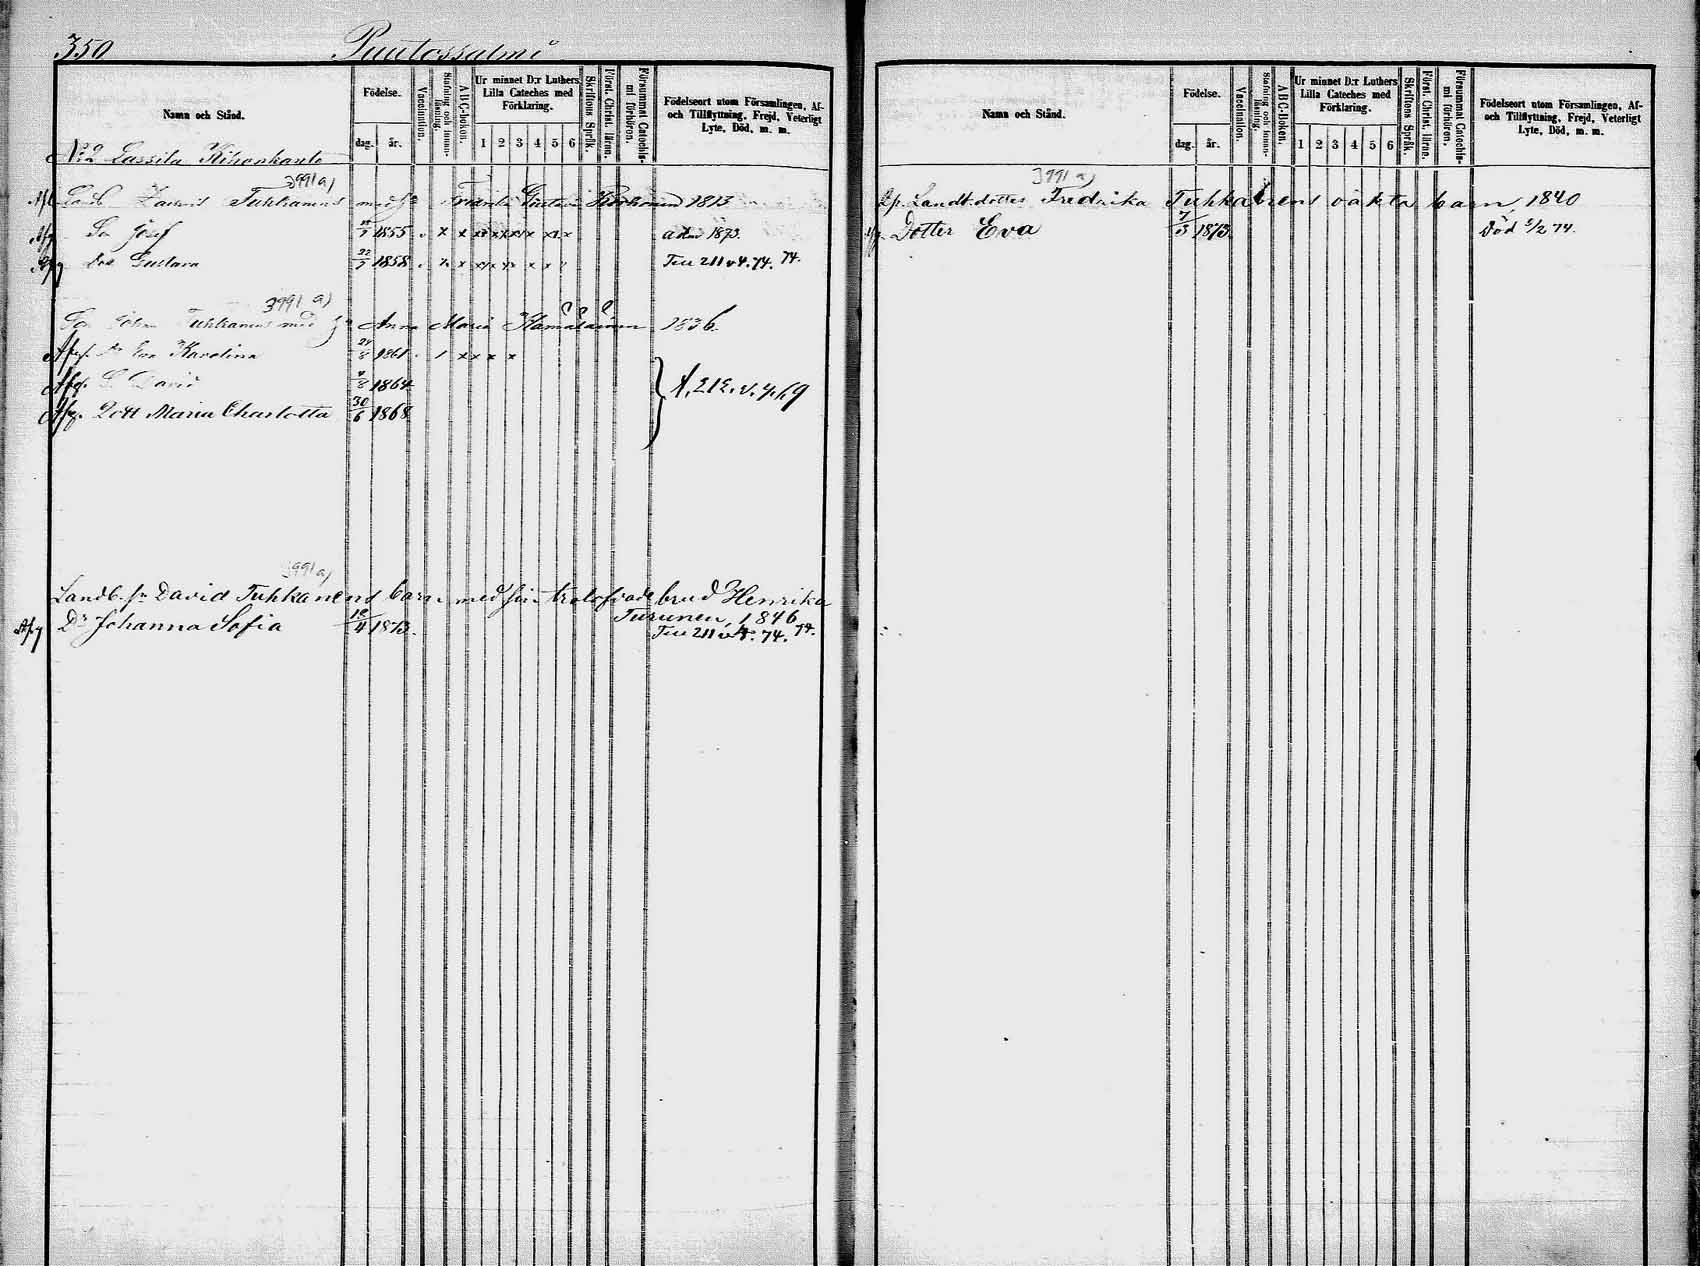 350 Puutossalmi
Namn och Stånd.
Födelse.
dag. år.
Vaccination.
Stafning och innan-läsning.
A B C-boken.
Ur minnet D:r Luthers Lilla Cateches med Förklaring.
1 2 3 4 5 6
Skriftens Språk.
Förstt. Christ. läran.
Försummat Catechis-mi förhören.
Födelseort utom Församlingen, Af- och Tillflyttning, Frejd, Veterligt Lyte, Död, m. m.
No 2 Lassila
3991 a)
Tuhkanens med Gustava 1813
Afg. Sn Josef 1855 v x x adm 1873.
Afg Dot Gustava 22/5 1858 Till 211 v 4. 74. 74.
3991 a)
Son Johan Tuhkanens med Anna Maria Hämäläinen 1836.
Afg. Dr Eva Karolina 1861 1 x x x x
Afg. S. David 1864
Afg. Dott Maria Charlotta 30/6 1868
3991 a)
Landb. sn David Tuhkanens barn med sin trolofvade brud Henrika
Turunen, 1846
Afg Dr Johanna Sofia 12/4 1873. Till 211 v 4. 74. 74.
Namn och Stånd.
Födelse.
dag. år.
Vaccination.
Stafning och innan-läsning.
A B C-Boken.
Ur minnet D:r Luthers Lilla Cateches med Förklaring.
1 2 3 4 5 6
Skriftens Språk.
Förstt. Christ. läran.
Försummat Catechis-mi förhören.
Födelseort utom Församlingen, Af- och Tillflyttning, Frejd, Veterligt Lyte, Död, m. m.
3991 a)
Landb. dotter Fredrika Tuhkanens oäkta barn, 1840
Dotter Eva 7/3 1873. Död 5/2 74.